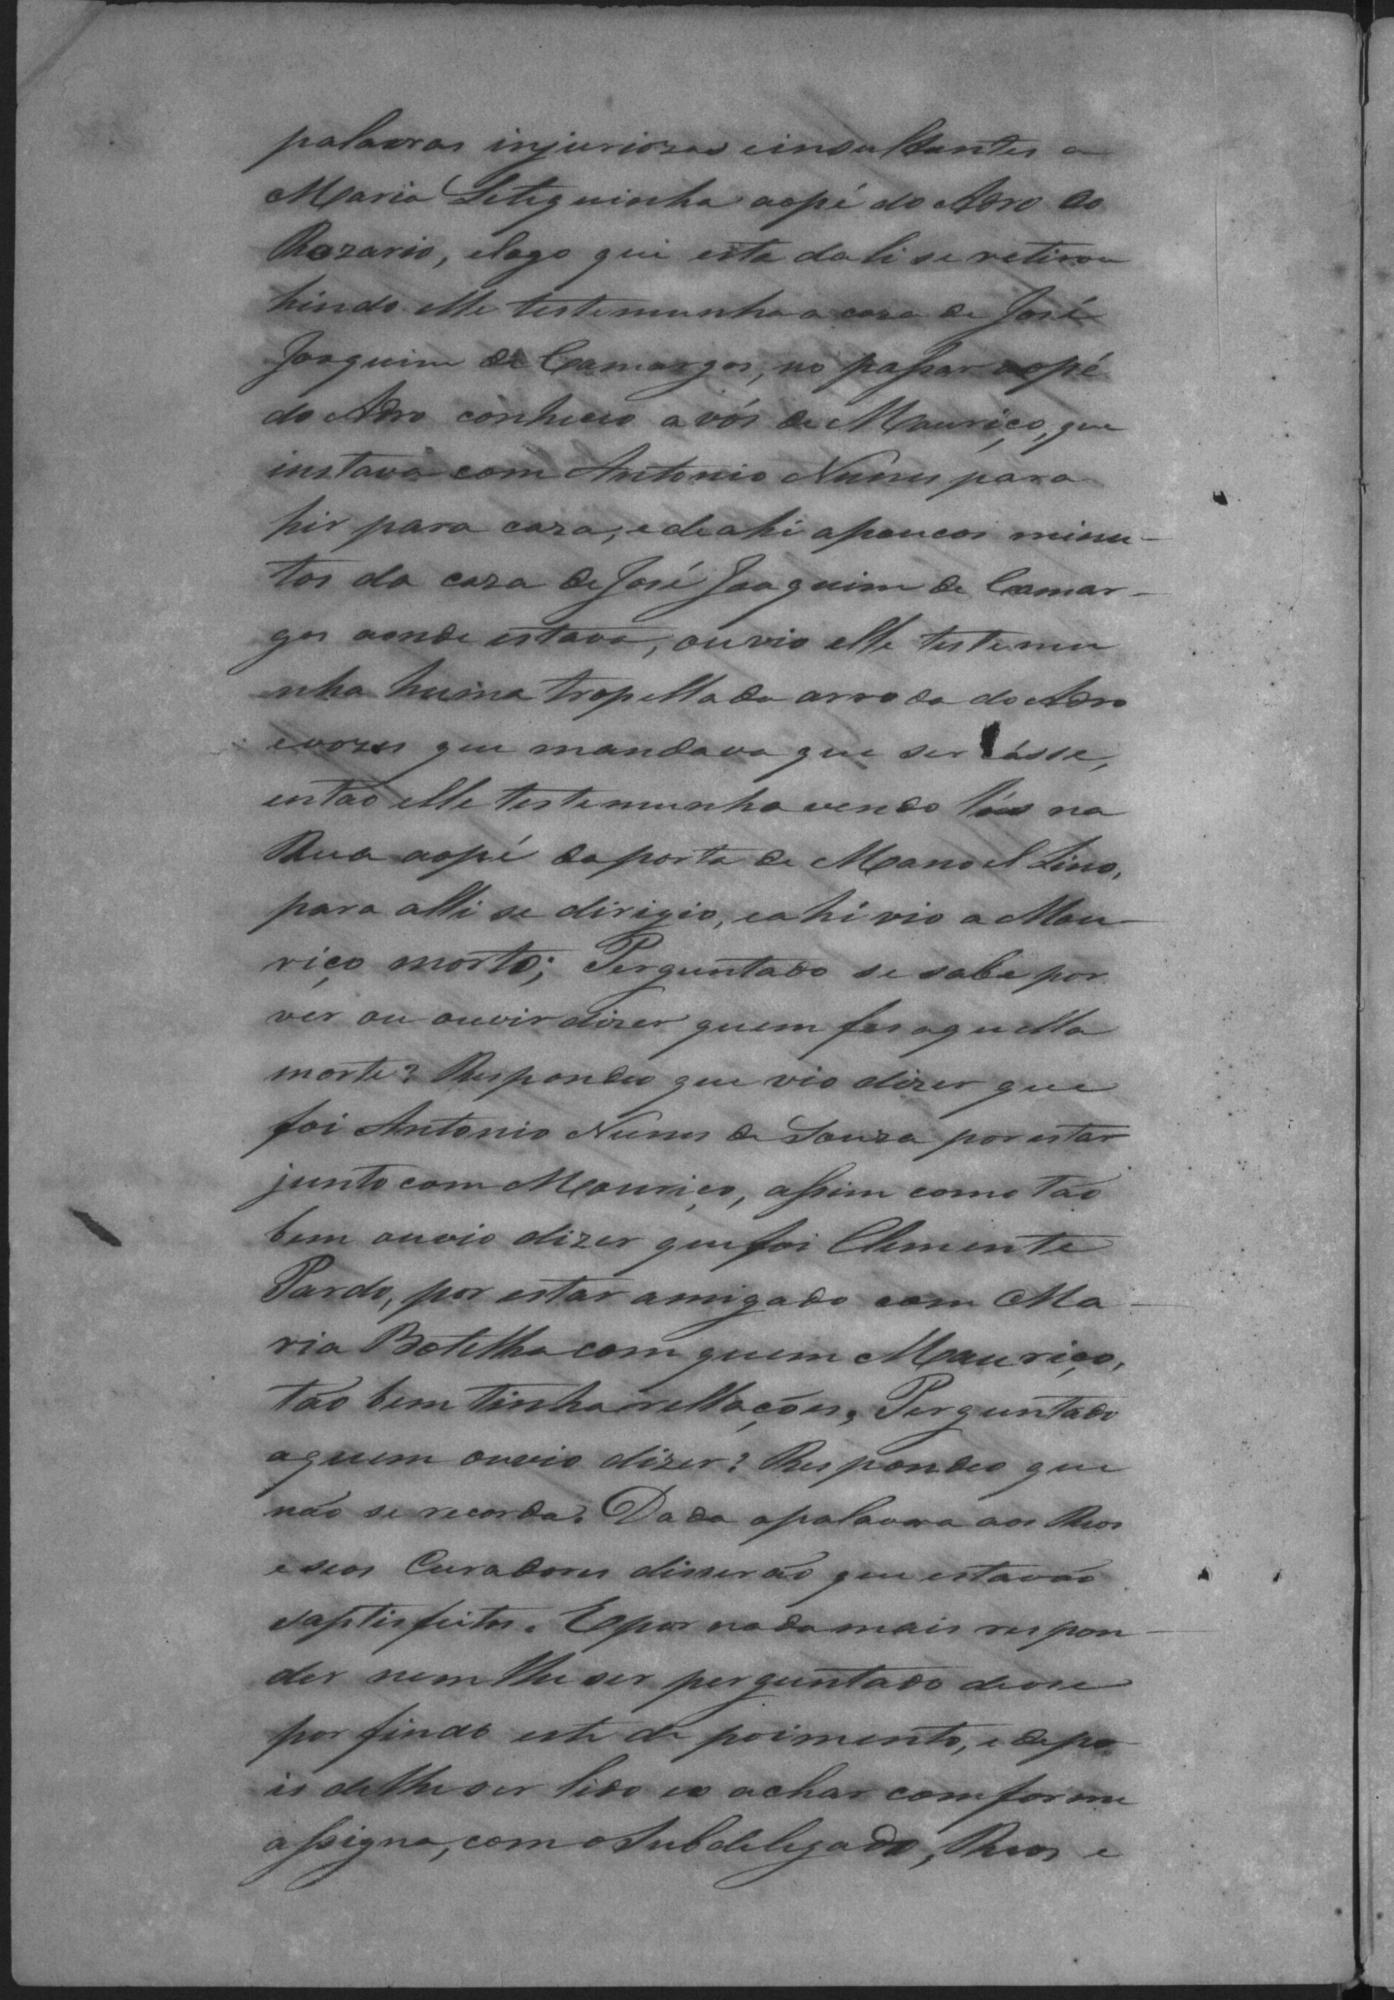 palavras injuriozas einsultantes a
Maria Letiguinha aopé do Adro do
Rozario, elogo que esta dali se retirou
hindo elle testemunha a caza de José
Joaquim de Camargos, no passar aopé
do Adro conheceo avós de Mauriço, que
instava com Antonio Nunes para
hir para caza, e de ahi apoucos minu-
tos da caza de José Joaquim de Camar-
gos aonde estava, ouvio elle testemu
nha huma tropellada arroda do Adro
evozes que mandava que sercásse,
então elle testemunha vendo lús na
Rua aopé daporta de Manoel Lino,
para alli se dirigio, eahi vio a Mau-
riço morto; Perguntado se sabe por
ver ou ouvir dizer quem fes aquella
morte? Respondeo que vio dizer que
foi Antonio Nunes de Souza por estar
junto com Mauriço, assim como tão
bem ouvio dizer que foi Clemente
Pardo, por estar amigado com Ma-
ria Botelha com quem Mauriço,
tão bem tinha rellações, Perguntado
aquem ouvio dizer? Respondeo que
não se recorda. Dada apalavra aos Reos
e seos Curadores disserão que estavão
saptisfeitos. Epor nada mais respon-
der nem lhe ser perguntado deose
por findo este depoimento, e depo-
is delhe ser lido eo achar comforme
assigna, com o Subdelegado, Reos e